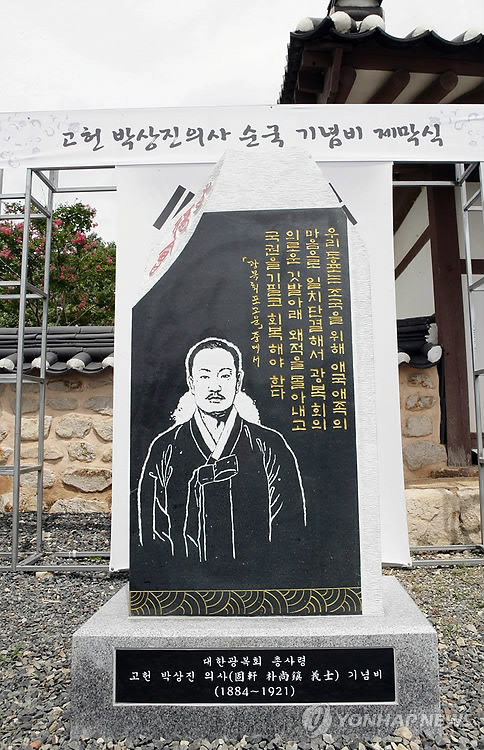 고헌 박상진의사 순국 기념비 제막식
우리 동포는 조국을 위해 애국애족의
마음으로 일치단결해서 광복회의
의로운 깃발아래 왜적을 몰아내고
국권을 기필코 회복해야 한다
「광복회 포고문」중에서
대한광복회 총사령
고헌 박상진 의사(固軒 朴尙鎭 義士) 기념비
(1884~1921)
YONHAPNEWS